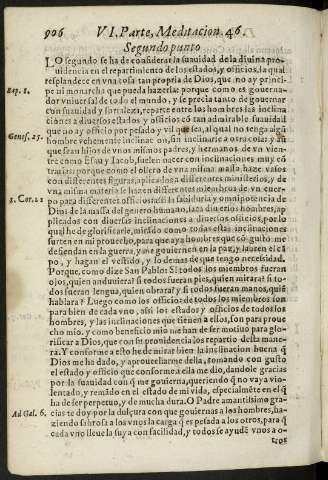 906 VI. Parte, Meditacion 46.
Segundo punto
LO segundo se ha de considerar la suauidad de la diuina pro-
uidencia en el repartimiento de los estados, y officios, la qual
resplandece en vna cosa tan propria de Dios, que no ay princi-
Sap. 8.
pe ni monarcha que pueda hazerla: porque como es gouerna-
dor vniuersal de todo el mundo, y se precia tanto de gouernar
con suauidad y fortaleza, reparte entre los hombres las inclina
ciones a diuersos estados y officios cõ tan admirable suauidad
que no ay officio por pesado y vil que sea, al qual no tenga algũ
Genes. 25.
hombre vehemente inclinacion, sin inclinarle a otra cosa; y aũ
que sean hijos de vnos mismos padres, y hermanos de vn vien-
tre como Esau y Iacob, suelen nacer con inclinaciones muy cõ
trarias: porque como el ollero de vna misma massa haze vasos
con differentes figuras, aplicados a differentes ministerios, y de
vna misma materia se hazen differentes miembros de vn cuer-
1. Cor. 12
po para differentes officios: assi la sabiduria y omnipotencia de
Dios de la massa del genero humano, saca diuersos hombres, ap
plicados con diuersas inclinaciones a diuersos officios, por lo
qual he de glorificarle, mirãdo como todas estas inclinaciones
surten en mi prouecho, para que aya hombres que cõ gusto me
defiendan en la guerra, y me gouiernen en la paz, y labren el cã
po, y hagan el vestido, y lo demas de que tengo necessidad.
Porque, como dize San Pablo: Si todos los miembros fueran
ojos, quien anduuiera? si todos fueran pies, quien mirara? si to-
dos fueran lengua, quien obrara? y si todos fueran manos, quiẽ
hablara? Luego como los officios de todos los miembros son
para bien de cada vno, assi los estados y officios de todos los
hombres, y las inclinaciones que tienen a ellos, son para proue
cho mio, y como beneficio mio me han de ser motiuo para glo-
rificar a Dios, que con su prouidencia los repartio desta mane-
ra. Y conforme a esto he de mirar bien la inclinacion buena q̃
Dios me ha dado, y aprouecharme della, tomando con gusto
el estado y officio que conforme a ella me dio, dandole gracias
por la suauidad con q̃ me gouierna, queriendo q̃ no vaya vio-
lentado, y remãdo en el estado de mi vida, especialmẽte en el q̃
ha de ser perpetuo, y de mucha dura. O Padre amantissimo gra-
Ad Gal. 6.
cias te doy por la dulçura con que gouiernas a los hombres, ha-
ziendo sabrosa a los vnos la carga q̃ es pesada a los otros, para q̃
cada vno lleue la suya con facilidad, y todos se ayudẽ vnos a o-